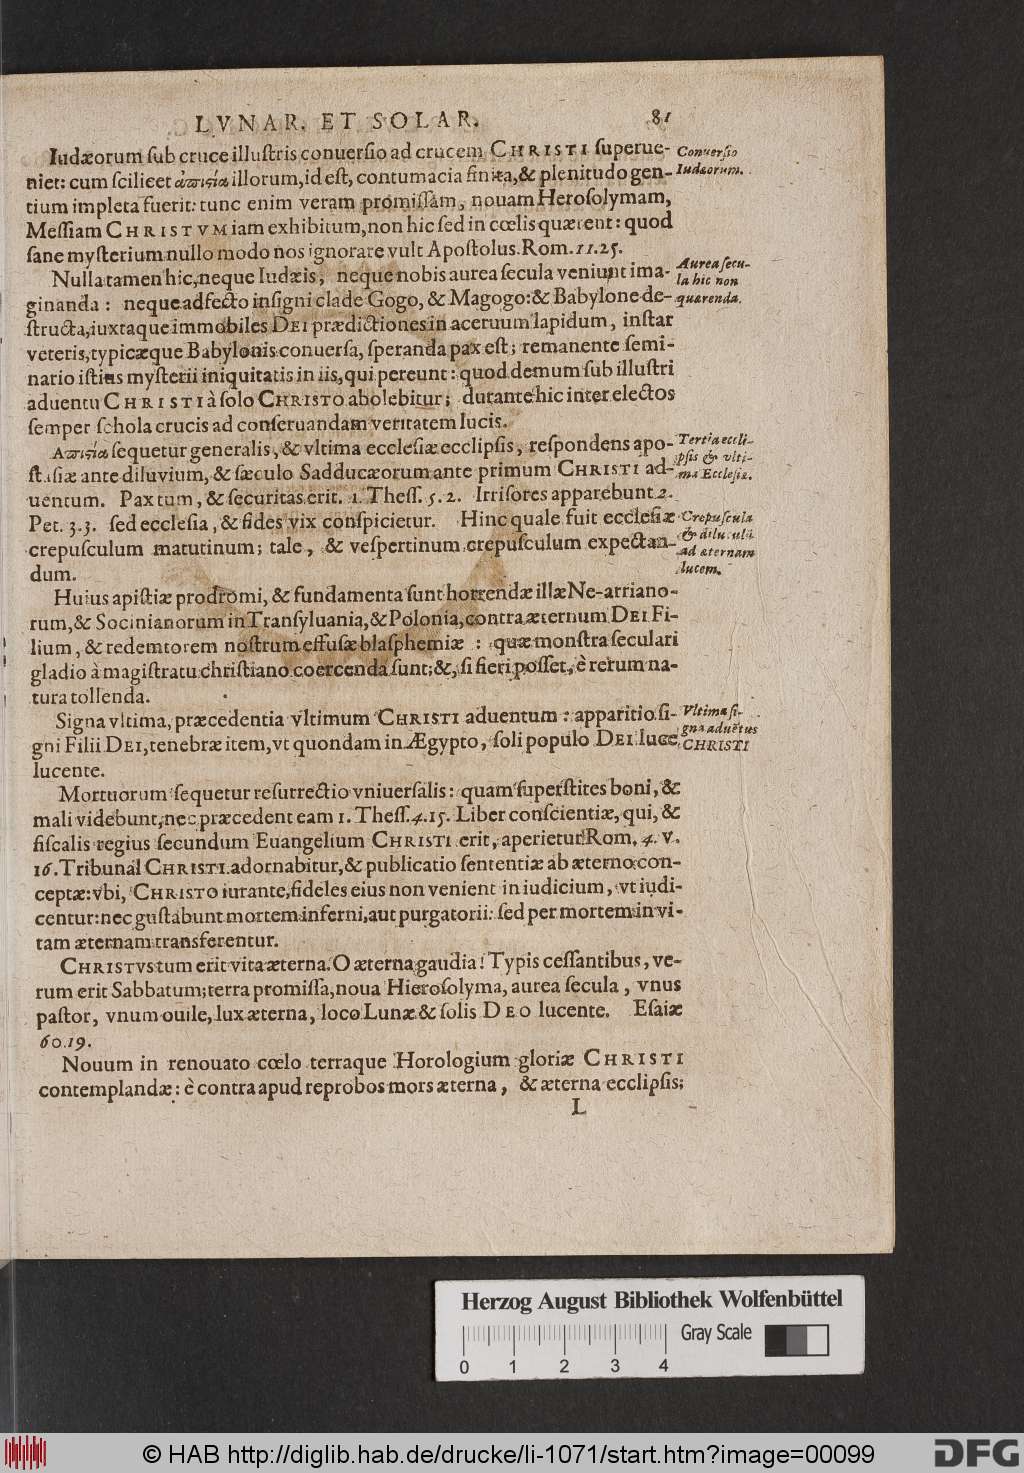 LVNAR. ET SOLAR. 81
Iudæorum ſub cruce illuſtris conuerſio ad crucem CHRISTI ſuperue-
niet: cum ſcilicet ἀπιςία illorum, id eſt, contumacia finita, & plenitudo gen-
tium impleta fuerit: tunc enim veram promiſſam, nouam Heroſolymam,
Meſſiam CHRISTVM iam exhibitum, non hic ſed in cœlis quærent: quod
ſane myſterium nullo modo nos ignorare vult Apoſtolus. Rom. 11. 25.
Conuerſio
Iudæorum.
Nulla tamen hic, neque Iudæis, neque nobis aurea ſecula veniunt ima-
ginanda: neque adfecto inſigni clade Gogo, & Magogo: & Babylone de-
ſtructa, iuxtaque immobiles DEI prædictiones in aceruum lapidum, inſtar
veteris, typicæque Babylonis conuerſa, ſperanda pax eſt; remanente ſemi-
nario iſtius myſterii iniquitatis in iis, qui pereunt: quod demum ſub illuſtri
aduentu CHRISTI à ſolo CHRISTO abolebitur; durante hic inter electos
ſemper ſchola crucis ad conſeruandam veritatem lucis.
Aurea ſecu-
la hic non
quærenda.
Απιςία ſequetur generalis, & vltima eccleſiæ ecclipſis, reſpondens apo-
ſtaſiæ ante diluvium, & ſæculo Sadducæorum ante primum CHRISTI ad-
uentum. Pax tum, & ſecuritas erit. 1. Theſſ. 5. 2. Irriſores apparebunt 2.
Pet. 3. 3. ſed eccleſia, & fides vix conſpicietur. Hinc quale fuit eccleſiæ
crepuſculum matutinum; tale, & veſpertinum crepuſculum expectan-
dum.
Tertia eccli-
pſis & vlti-
ma Eccleſiæ.
Crepuſcula
& diluculū
ad æternam
lucem.
Huius apiſtiæ prodromi, & fundamenta ſunt horrendæ illæ Ne-arriano-
rum, & Socinianorum in Tranſyluania, & Polonia, contra æternum DEI Fi-
lium, & redemtorem noſtrum effuſæ blaſphemiæ: quæ monſtra ſeculari
gladio à magiſtratu chriſtiano coercenda ſunt; &, ſi fieri poſſet, è rerum na-
tura tollenda.
Signa vltima, præcedentia vltimum CHRISTI aduentum: apparitio ſi-
gni Filii DEI, tenebræ item, vt quondam in Ægypto, ſoli populo DEI luce
lucente.
Vltima ſi-
gna aduētus
CHRISTI
Mortuorum ſequetur reſurrectio vniuerſalis: quam ſuperſtites boni, &
mali videbunt, nec præcedent eam 1. Theſſ. 4. 15. Liber conſcientiæ, qui, &
fiſcalis regius ſecundum Euangelium CHRISTI erit, aperietur Rom. 4. v.
16. Tribunal CHRISTI adornabitur, & publicatio ſententiæ ab æterno con-
ceptæ: vbi, CHRISTO iurante, fideles eius non venient in iudicium, vt iudi-
centur: nec guſtabunt mortem inferni, aut purgatorii: ſed per mortem in vi-
tam æternam transferentur.
CHRISTVS tum erit vita æterna. O æterna gaudia! Typis ceſſantibus, ve-
rum erit Sabbatum; terra promiſſa, noua Hieroſolyma, aurea ſecula, vnus
paſtor, vnum ouile, lux æterna, loco Lunæ & ſolis DEO lucente. Eſaiæ
60. 19.
Nouum in renouato cœlo terraque Horologium gloriæ CHRISTI
contemplandæ: è contra apud reprobos mors æterna, & æterna ecclipſis;
L
Herzog August Bibliothek Wolfenbüttel
Gray Scale
0 1 2 3 4
© HAB http://diglib.hab.de/drucke/li-1071/start.htm?image=00099
DFG